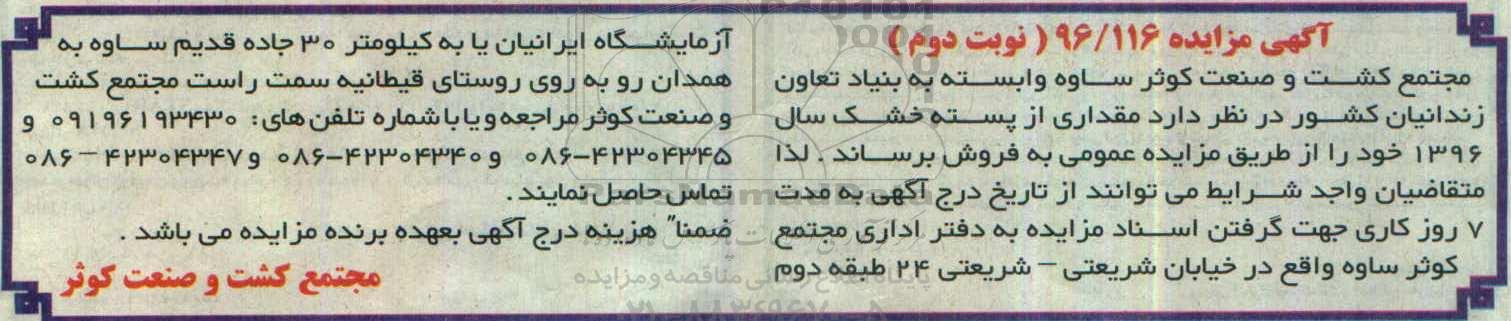 آگهی مزایده ۹۶/۱۱۶ ( نوبت دوم )
مجتمع کشت و صنعت کوثر ساوه وابسته به بنیاد تعاون
زندانیان کشور در نظر دارد مقداری از پسته خشک سال
۱۳۹۶ خود را از طریق مزایده عمومی به فروش برساند . لذا
متقاضیان واجد شرایط می توانند از تاریخ درج آگهی به مدت
۷ روز کاری جهت گرفتن اسناد مزایده به دفتر اداری مجتمع
کوثر ساوه واقع در خیابان شریعتی – شریعتی ۲۴ طبقه دوم
آزمایشگاه ایرانیان یا به کیلومتر ۳۰ جاده قدیم ساوه به
همدان رو به روی روستای قیطانیه سمت راست مجتمع کشت
و صنعت کوثر مراجعه و یا با شماره تلفن های: ۰۹۱۹۶۱۹۳۴۳۰ و
۰۸۶-۴۲۳۰۴۳۴۵ و ۰۸۶-۴۲۳۰۴۳۴۰ و ۰۸۶-۴۲۳۰۴۳۴۷
تماس حاصل نمایند .
ضمنا" هزینه درج آگهی بعهده برنده مزایده می باشد .
مجتمع کشت و صنعت کوثر